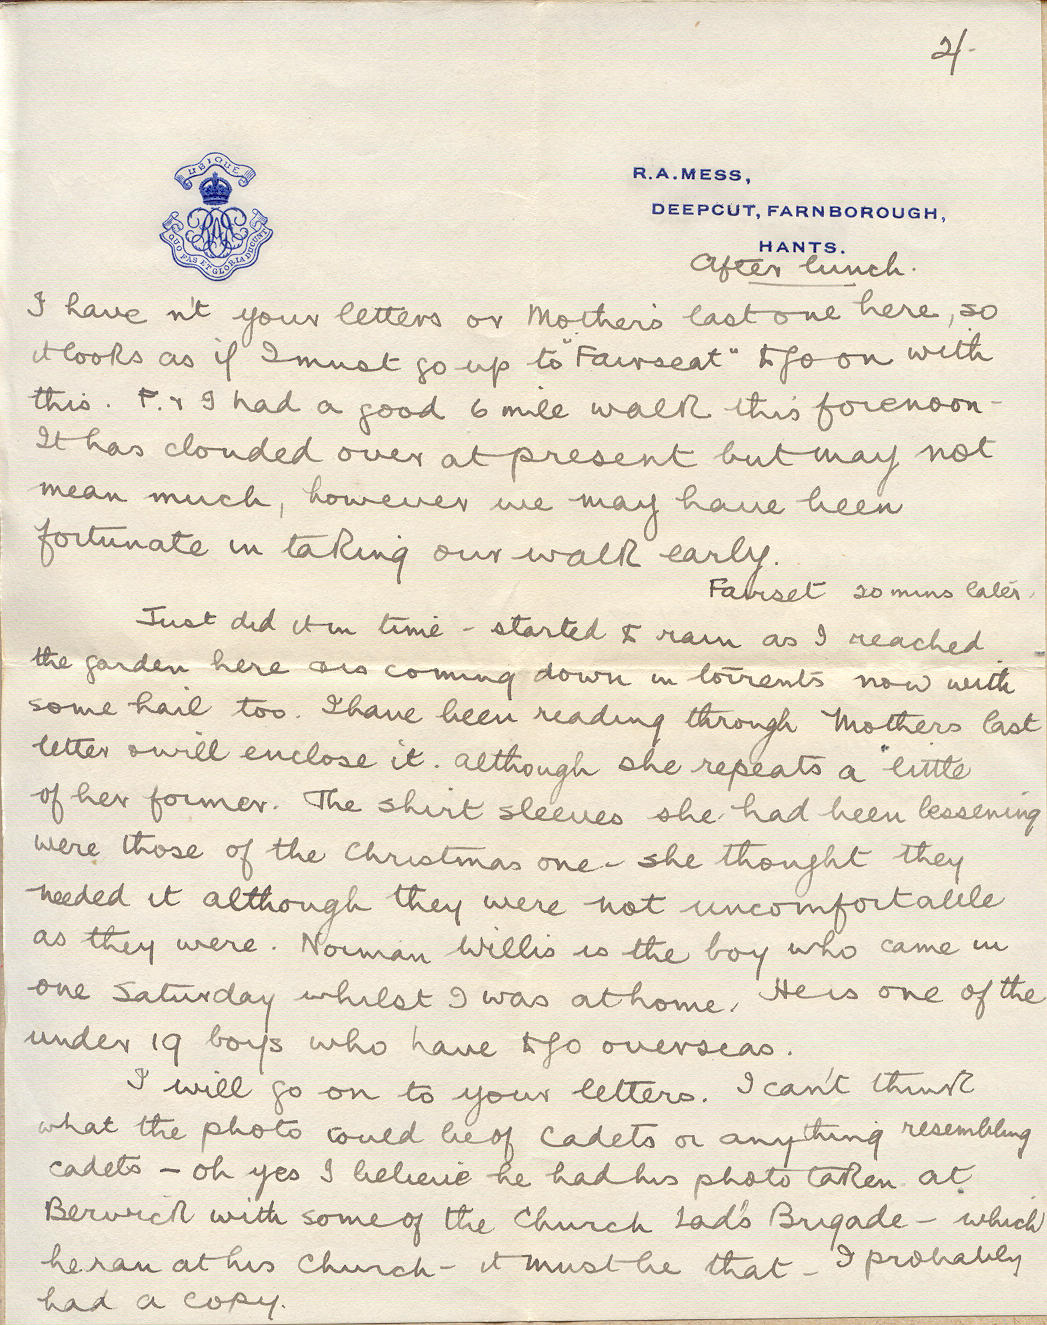 2/-
UBIQUE
QUO FAS ET GLORIA DUCUNT
R.A. MESS,
DEEPCUT, FARNBOROUGH,
HANTS.
After lunch.
I have n't your letters or Mother's last one here, so
it looks as if I must go up to "Fairseat" to go on with
this. F. & I had a good 6 mile walk this forenoon -
It has clouded over at present but may not
mean much, however we may have been
fortunate in taking our walk early.
Fairset 20 mins later.
Just did it in time - started to rain as I reached
the garden here & is coming down in torrents now with
some hail too. I have been reading through Mothers last
letter & will enclose it. although she repeats a little
of her former. The shirt sleeves she had been lessening
were those of the Christmas one - she thought they
needed it although they were not uncomfortable
as they were. Norman Willis is the boy who came in
one Saturday whilst I was at home. He is one of the
under 19 boys who have to go overseas.
I will go on to your letters. I can't think
what the photo could be of cadets or anything resembling
cadets - oh yes I believe he had his photo taken at
Berwick with some of the Church Lad's Brigade - which
he ran at his Church - it must be that - I probably
had a copy.